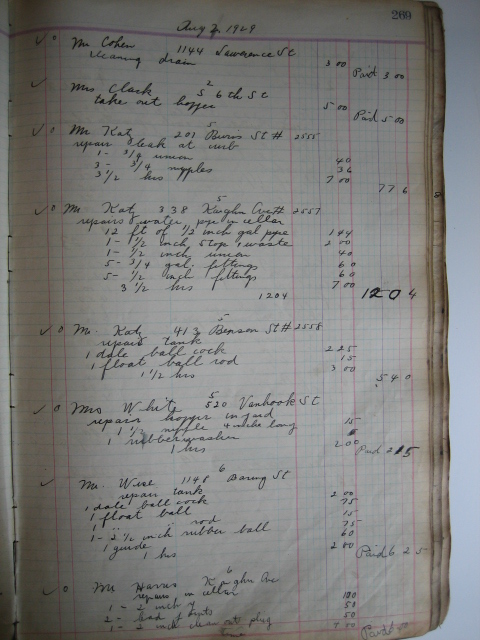 269
Aug 2, 1929
Mr Cohen 1144 Lawerence St
cleaning drain 3 00
Paid 3 00
Mrs Clack 5 6th St
take out hopper 5 00
Paid 5 00
Mr Katz 201 Burns St # 2555
repair leak at curb
1 - 3/4 union 40
3 - 3/4 nipples 36
3 1/2 hrs 7 00
7 76
Mr Katz 338 Kaighn Ave # 2557
repairs water pipe in cellar
12 ft of 1/2 inch gal pipe 1 44
1 - 1/2 inch stop & waste 2 00
1 - 1/2 inch union 40
5 - 3/4 gal fittings 60
5 - 1/2 inch fittings 60
3 1/2 hrs 7 00
1204 12 04
Mr Katz 413 Benson St # 2558
repair tank
1 dale ball cock 2 25
1 float ball rod 15
1 1/2 hrs 3 00
5 40
Mrs White 520 Vanhook St
repair hopper in yard
1 1/2 nipple 4 inches long 15
1 rubber washer
1 hrs 2 00
Paid 2 15
Mr. Wise 1148 Baring St
repair tank
1 dale ball cock 2 00
1 float ball 75
1 " " rod 15
1 - 2 1/2 inch rubber ball 75
1 guide 60
1 hrs 2 00
Paid 6 25
Mr Harris Kaighn Ave
repairs in cellar
1 - 2 inch
2 - 50
1 - 2 inch clean out plug 50